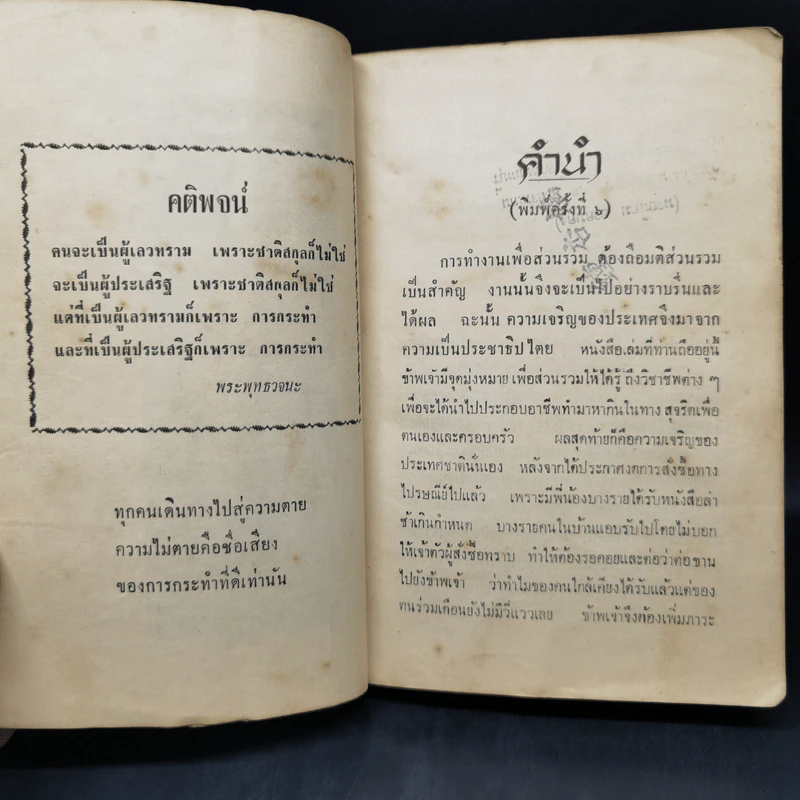 คติพจน์
คนจะเป็นผู้เลวทราม เพราะชาติสกุลก็ไม่ใช่
จะเป็นผู้ประเสริฐ เพราะชาติสกุลก็ไม่ใช่
แต่ที่เป็นผู้เลวทรามก็เพราะ การกระทำ
และที่เป็นผู้ประเสริฐก็เพราะ การกระทำ
พระพุทธวจนะ
ทุกคนเดินทางไปสู่ความตาย
ความไม่ตายคือชื่อเสียง
ของการกระทำที่ดีเท่านั้น
คำนำ
(พิมพ์ครั้งที่ ๖)
การทำงานเพื่อส่วนรวม ต้องถือมติส่วนรวม
เป็นสำคัญ งานนั้นจึงจะเป็นไปอย่างราบรื่นและ
ได้ผล ฉะนั้น ความเจริญของประเทศจึงมาจาก
ความเป็นประชาธิปไตย หนังสือเล่มที่ท่านถืออยู่นี้
ข้าพเจ้ามีจุดมุ่งหมาย เพื่อส่วนรวมให้ได้รู้ ถึงวิชาชีพต่าง ๆ
เพื่อจะได้นำไปประกอบอาชีพทำมาหากินในทาง สุจริตเพื่อ
ตนเองและครอบครัว ผลสุดท้ายก็คือความเจริญของ
ประเทศชาตินั่นเอง หลังจากได้ประกาศงดการสั่งซื้อทาง
ไปรษณีย์ไปแล้ว เพราะมีพี่น้องบางรายได้รับหนังสือล่า
ช้าเกินกำหนด บางรายคนในบ้านแอบรับไปโดยไม่บอก
ให้เจ้าตัวผู้สั่งซื้อทราบ ทำให้ต้องรอคอยและต่อว่าต่อขาน
ไปยังข้าพเจ้า ว่าทำไมของคนใกล้เคียงได้รับแล้วแต่ของ
ตนร่วมเดือนยังไม่มีวี่แววเลย ข้าพเจ้าจึงต้องเพิ่มภาระ